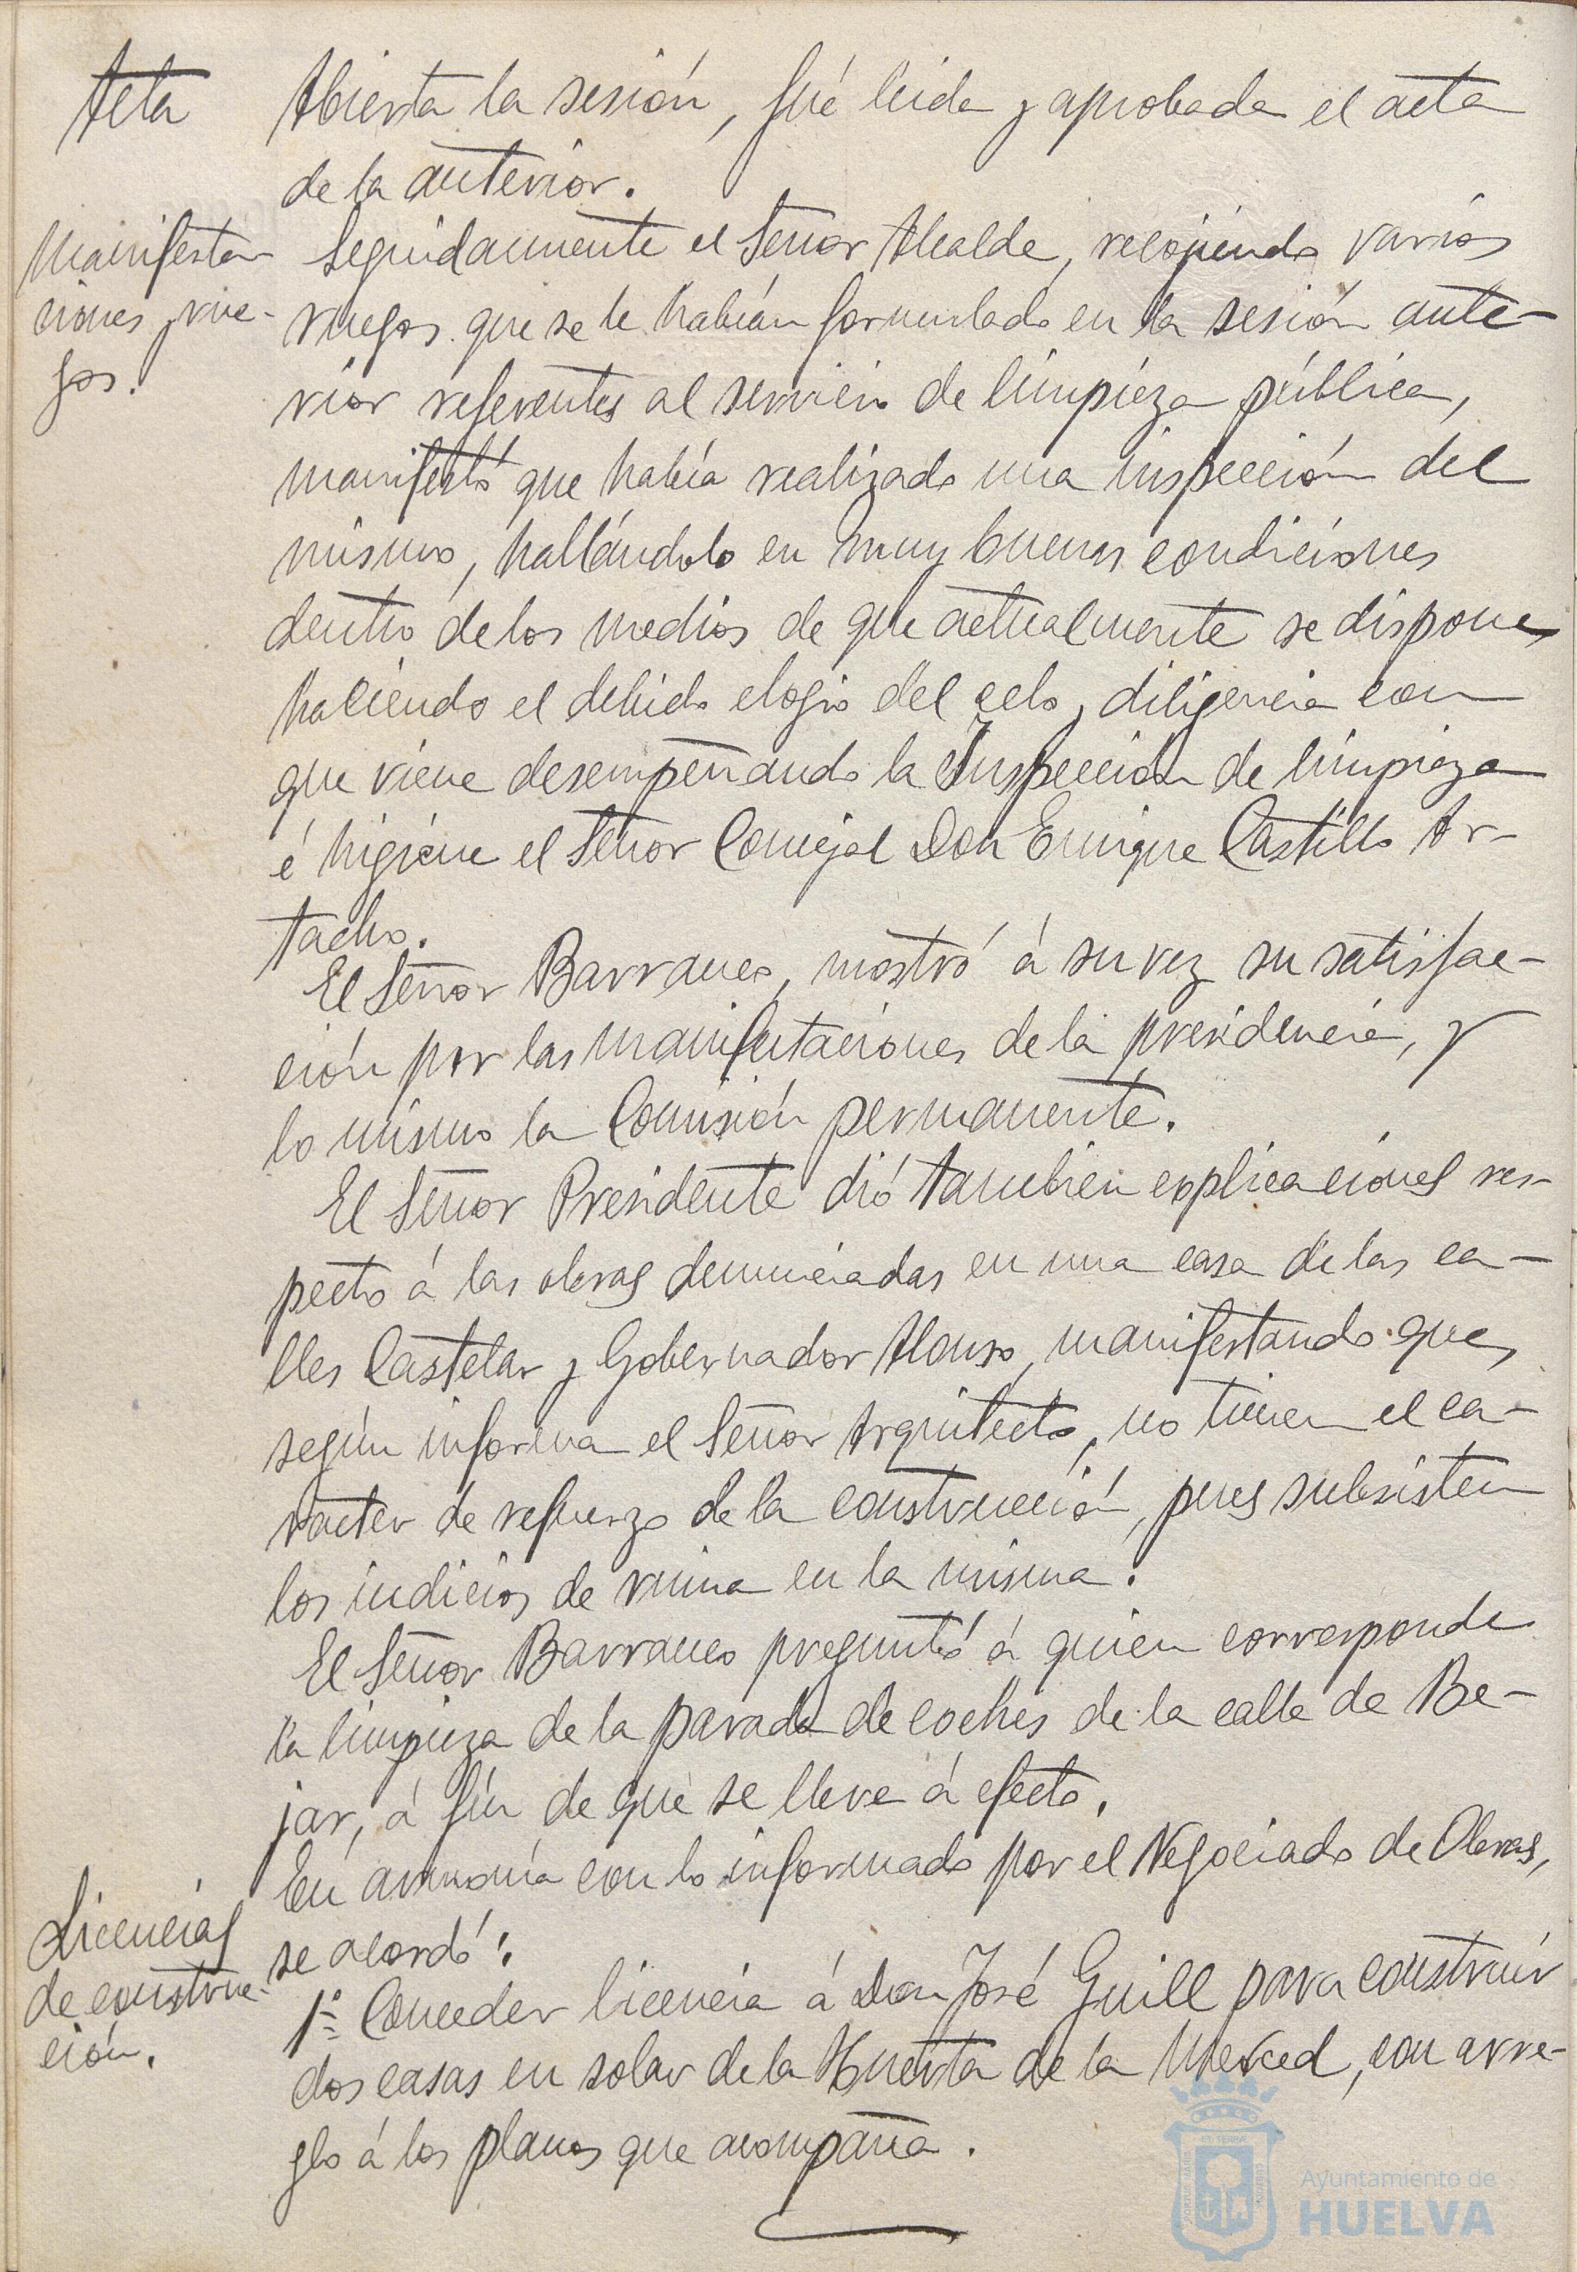 Acta
Abierta la sesión, fué leida y aprobada el acta
de la anterior.
Manifesta-
ciones y rue-
gos.
Seguidamente el Señor Alcalde, recojiendo varios
ruegos que se le habían formulado en la sesión ante-
rior referentes al servicio de limpieza pública,
manifestó que había realizado una inspección del
mismo, hallándolo en muy buenas condiciones
dentro de los medios de que actualmente se dispone,
haciendo el debido elogio del celo y diligencia con
que viene desempeñando la Inspección de limpieza
é higiene el Señor Concejal Don Enrique Castillo Ar-
tacho.
El Señor Barranco, mostró á su vez su satisfac-
ción por las manifestaciones de la presidencia, y
lo mismo la Comisión permanente.
El Señor Presidente dió tambien explicaciones res-
pecto á las obras denunciadas en una casa de las ca-
lles Castelar y Gobernador Alonso, manifestando que,
según informa el Señor Arquitecto, no tienen el ca-
racter de refuerzo de la construcción, pues subsisten
los indicios de ruina en la misma.
El Señor Barranco preguntó á quien corresponde
la limpieza de la parada de coches de la calle de Be-
jar, á fín de que se lleve á efecto.
Licencias
de construc-
ción.
En armonía con lo informado por el Negociado de Obras,
se acordó:
1º Conceder licencia á Don José Guill para construir
dos casas en solar de la Huerta de la Merced, con arre-
glo á los planos que acompaña.
Ayuntamiento de
HUELVA